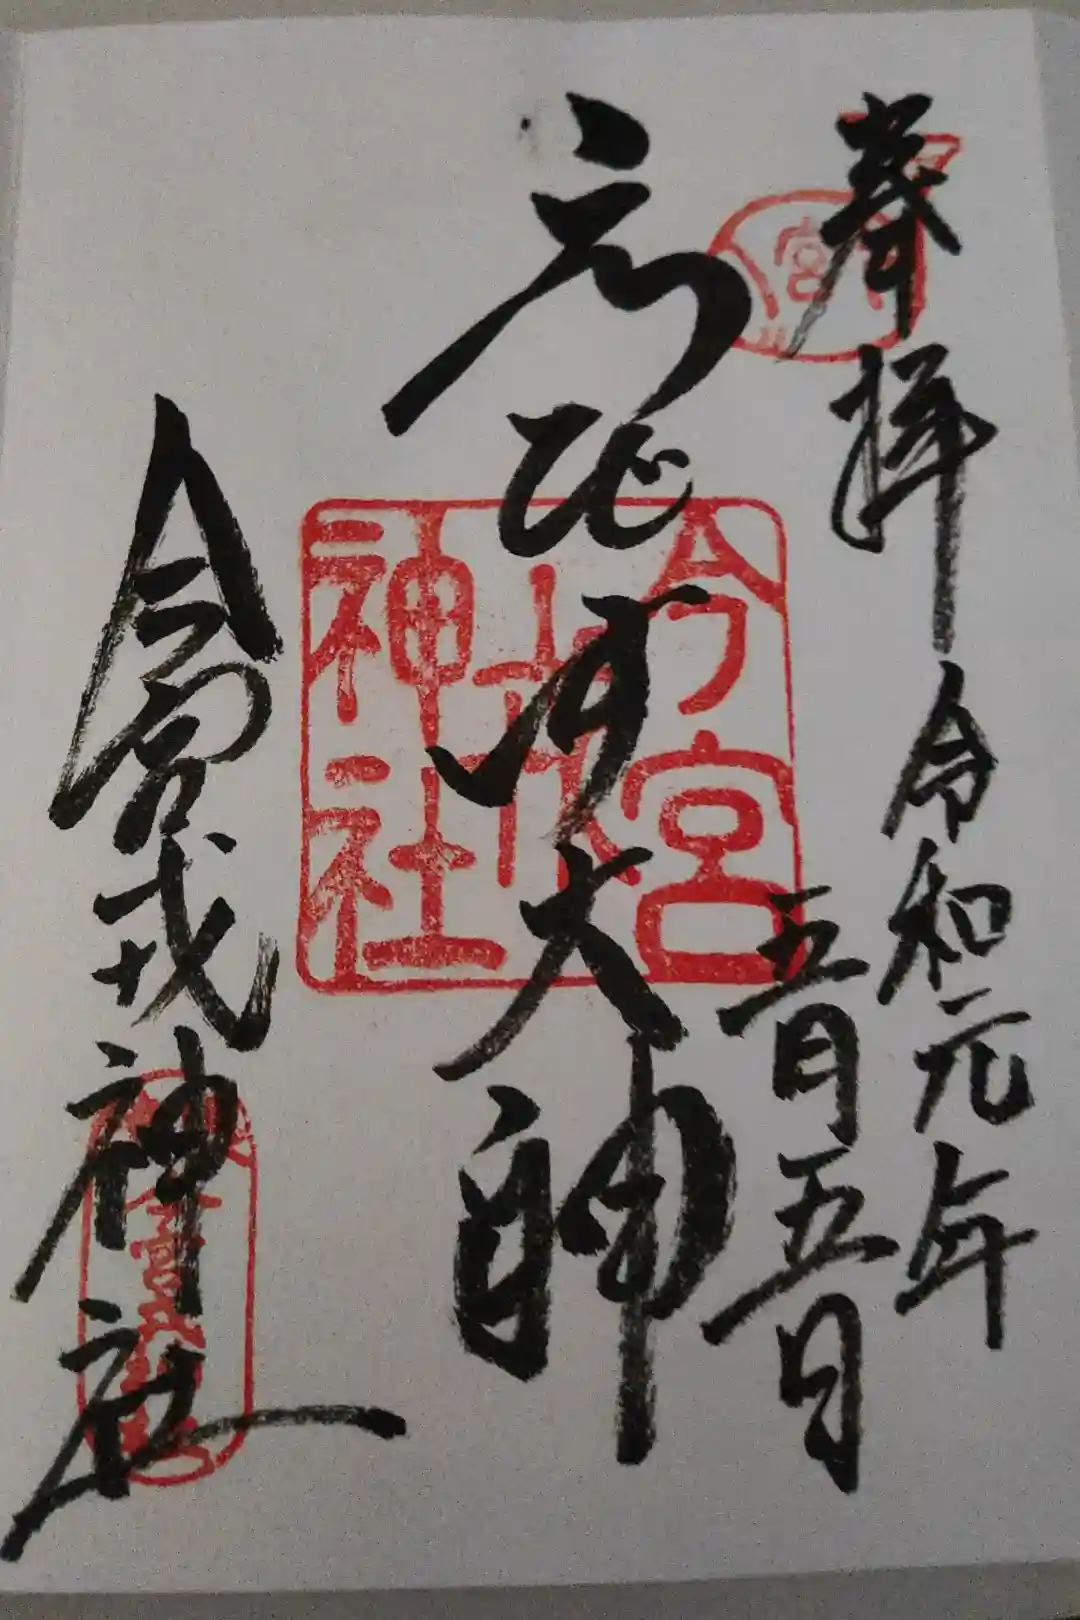 奉拝 令和元年
五月五日
ゑびす大神
今宮戎神社
今宮
戎
神社
宮